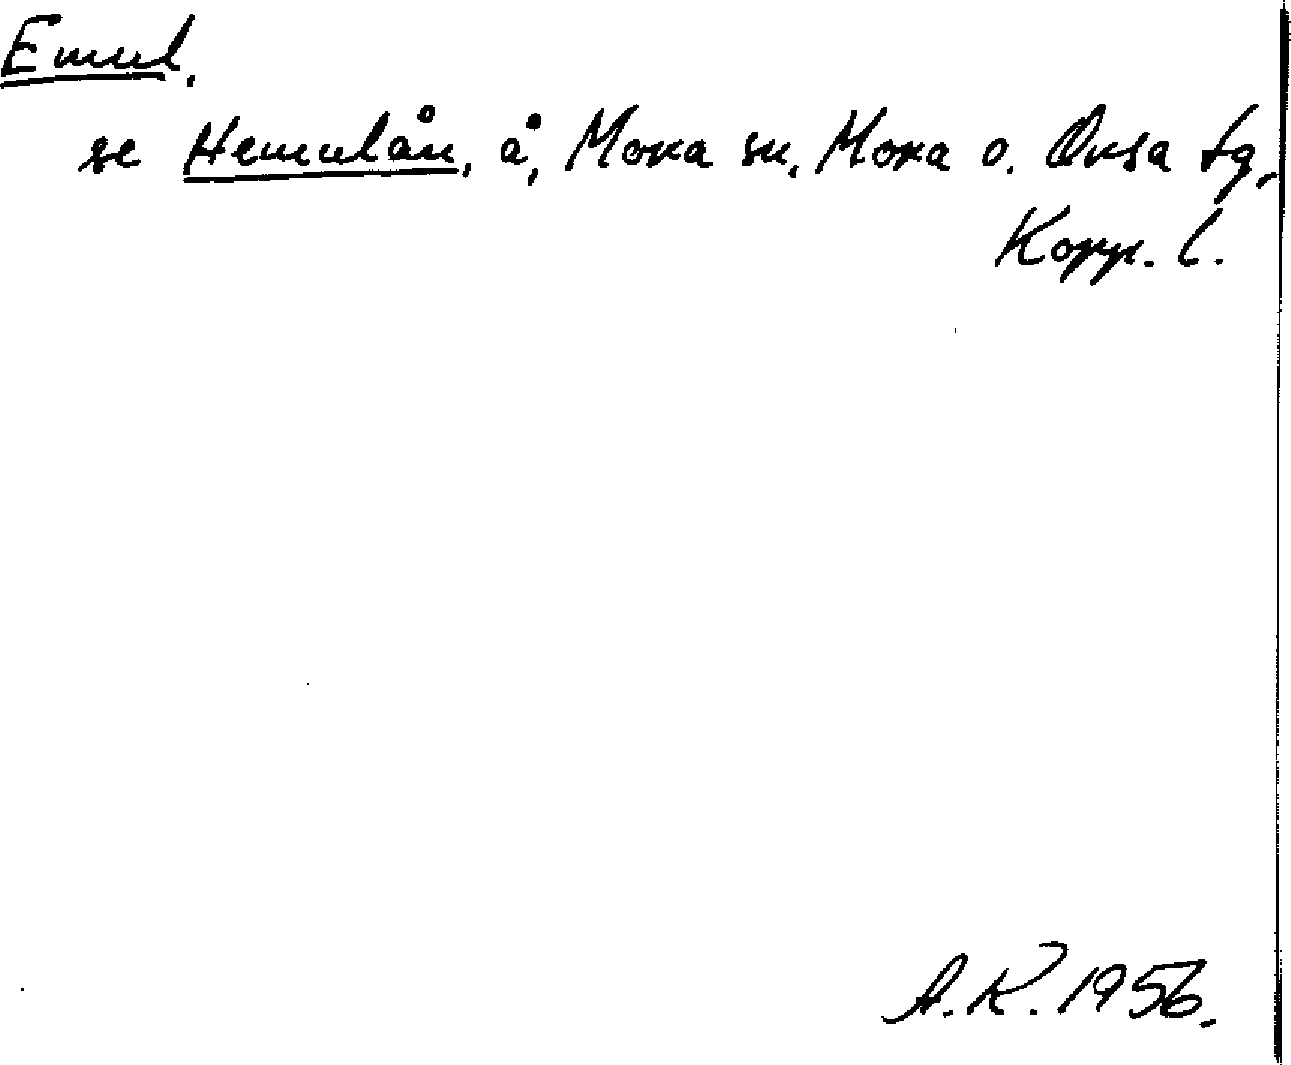 Emul,
se Hemulån, å, Mora sn, Mora o. Orsa tg,
Kopp. l.
A.K. 1956.